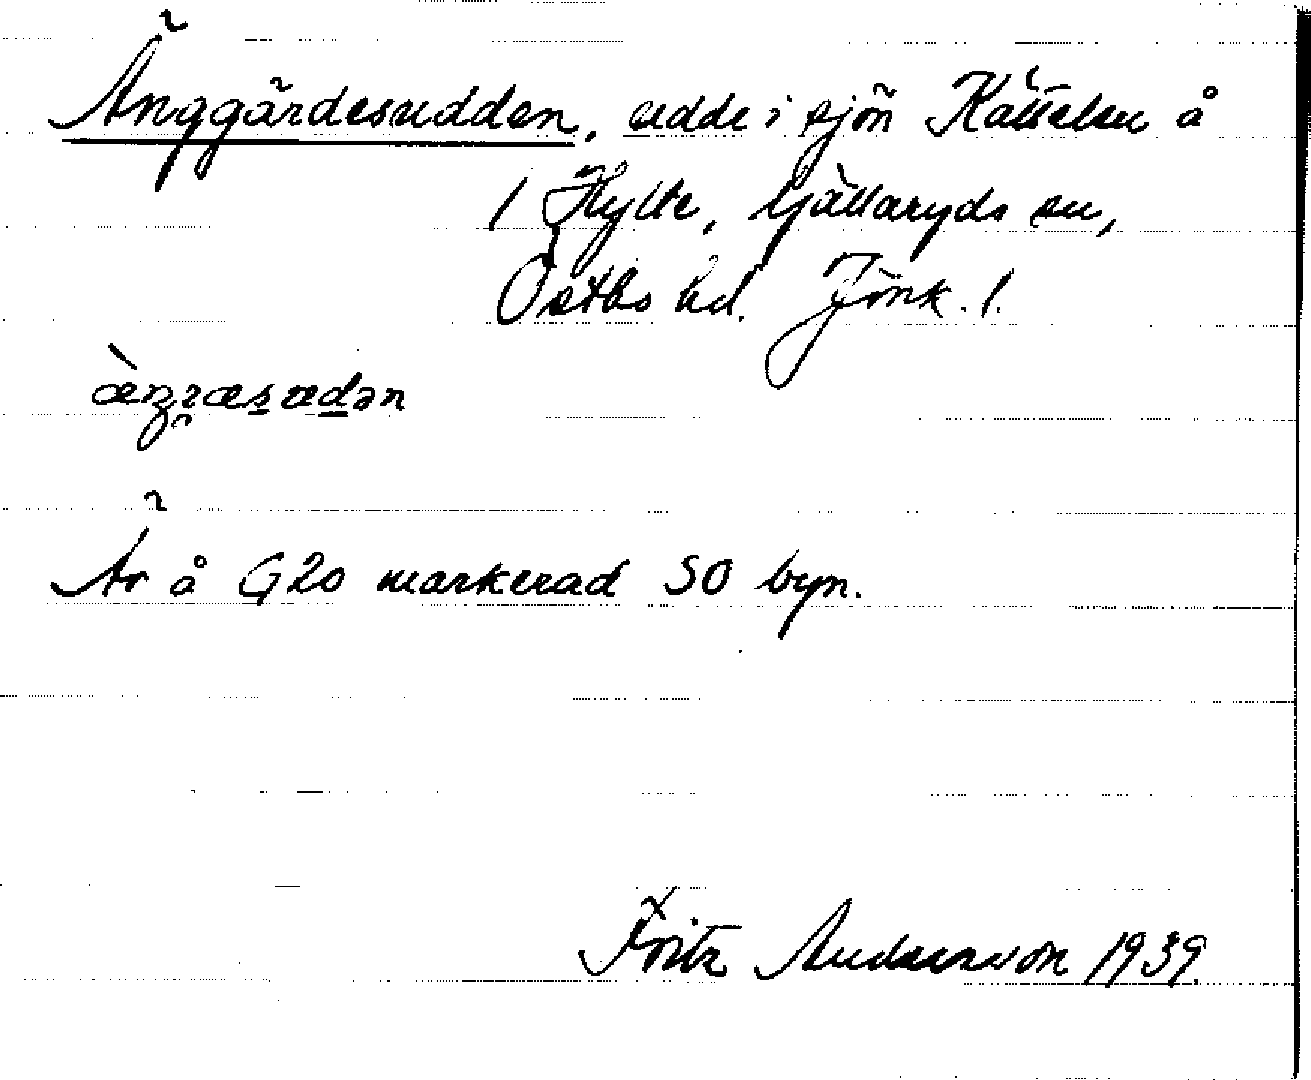 Änggärdesudden, udde i sjön Kätteln å
1 Hylte, Gällaryds sn,
Östbo hd. Jönk. l.
Är å G20 markerad SO byn.
Fritz Andersson 1939.